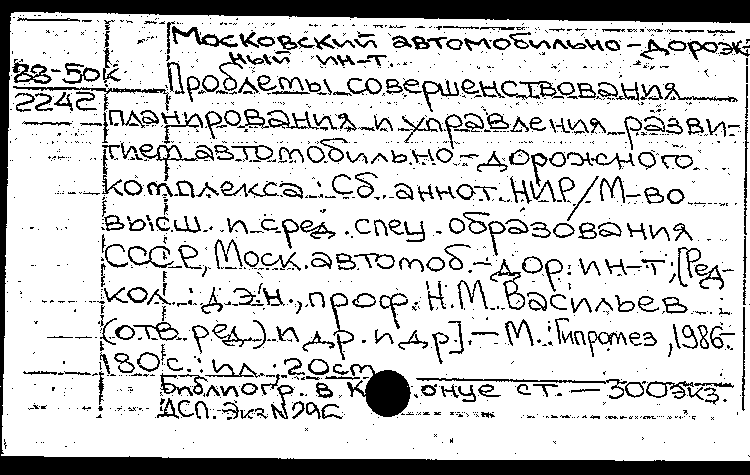 Московский автомобильно-дорож
ный ин-т.
88-50к
2242
Проблемы совершенствования
планирования и управления разви-
тием автомобильно-дорожного
комплекса: Сб. аннот. НИР/М-во
высш. и сред. спец. образования
СССР, Моск. автомоб.-дор. ин-т; [Ред-
кол.: д.э.н., проф. Н.М. Васильев
(отв. ред.) и др. и др]. — М.: Гипротез, 1986.-
180 с.: ил.; 20 cm
Библиогр. в к онце ст. — 300экз.
ДСП. Экз N